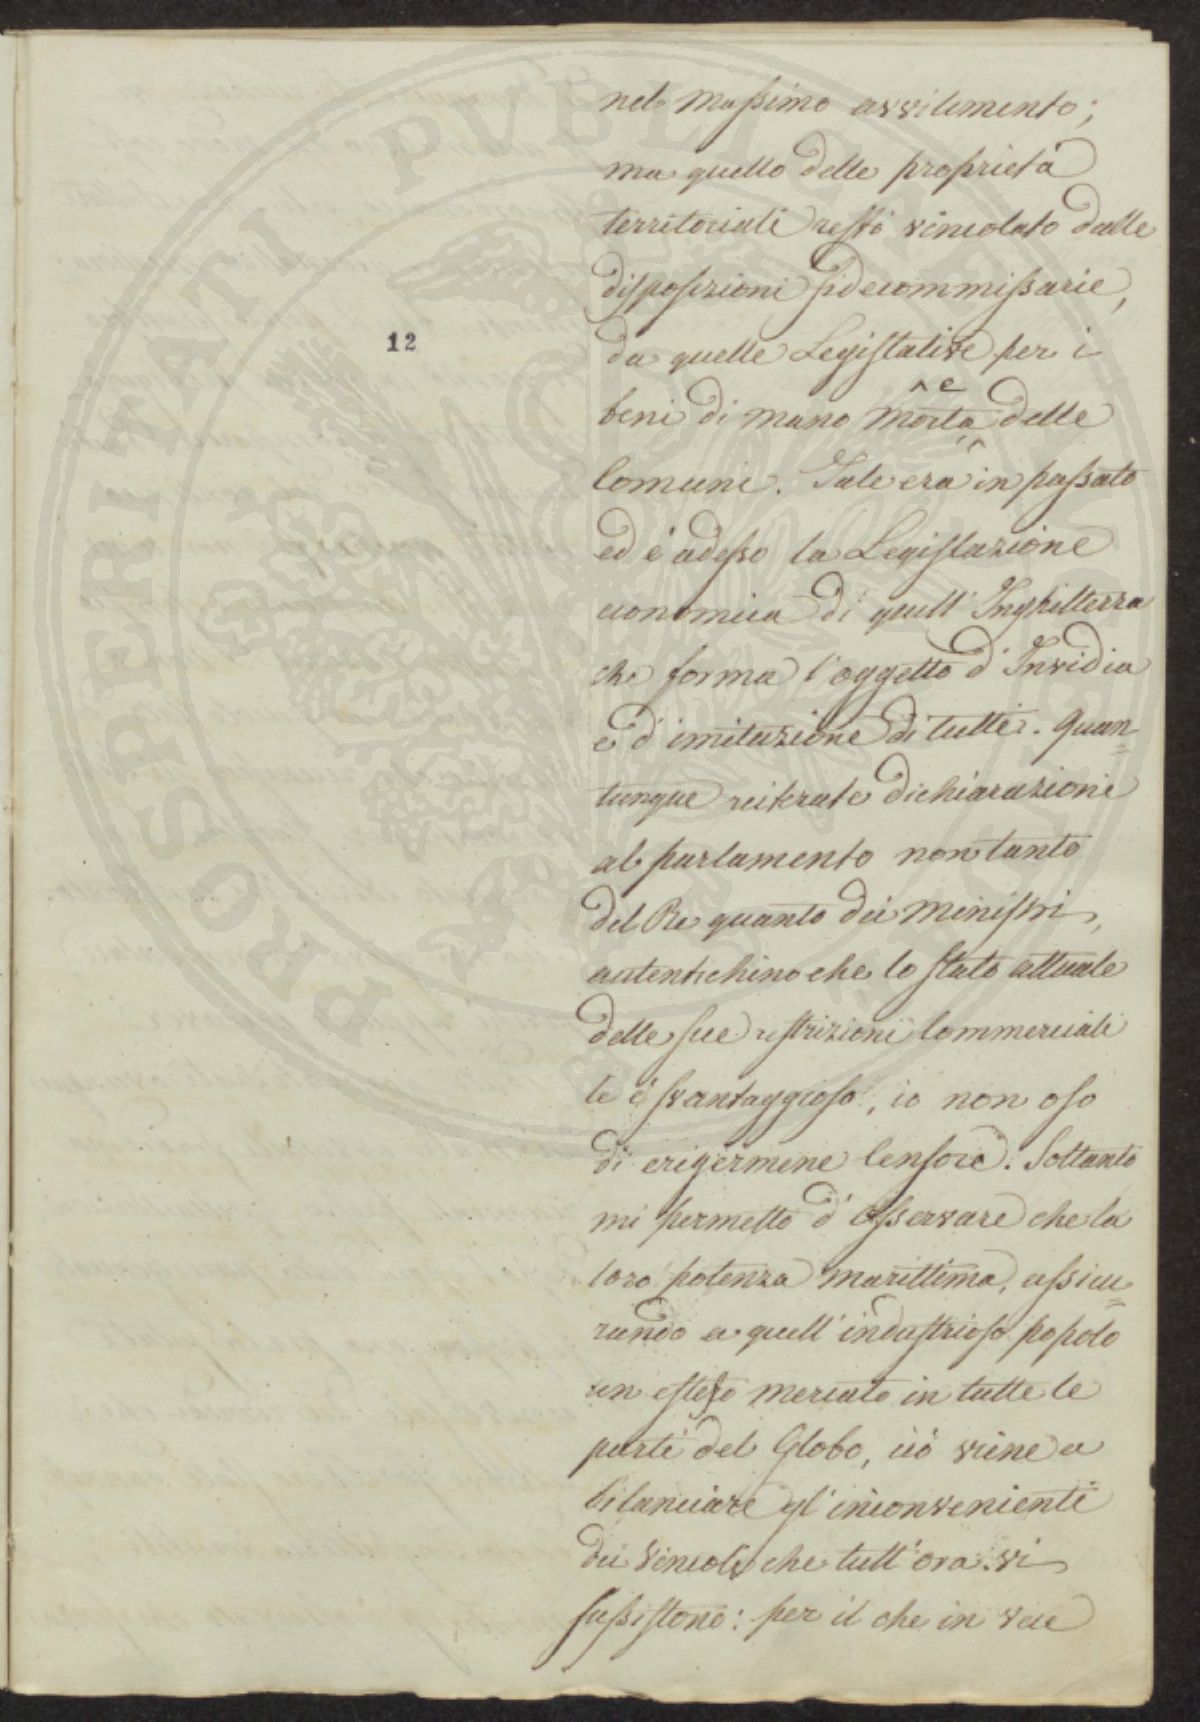 PROSPERITATI PVBLICAE
12
nel massimo avvilimento;
ma quello delle proprietà
territoriali restò vincolato dalle
disposizioni fidecommissarie,
da quelle Legislative per i
beni di mano morta ^e delle
Comuni. Tale era in passato
ed è adesso la Legislazione
economica di quell' Inghilterra
che forma l'oggetto d'Invidia
e d'imitazione di tutti. Quan=
tunque reiterate dichiarazioni
al parlamento non tanto
del Re quanto dei Ministri,
autentichino che lo stato attuale
delle sue restrizioni Commerciali
le è svantaggioso, io non oso
di erigermine Censore. Soltanto
mi permetto d'osservare che la
loro potenza marittima, assicu=
rando a quell'industrioso popolo
un esteso mercato in tutte le
parti del Globo, ciò viene a
bilanciare gl'inconvenienti
dei vincoli che tutt'ora vi
sussistono: per il che in vece